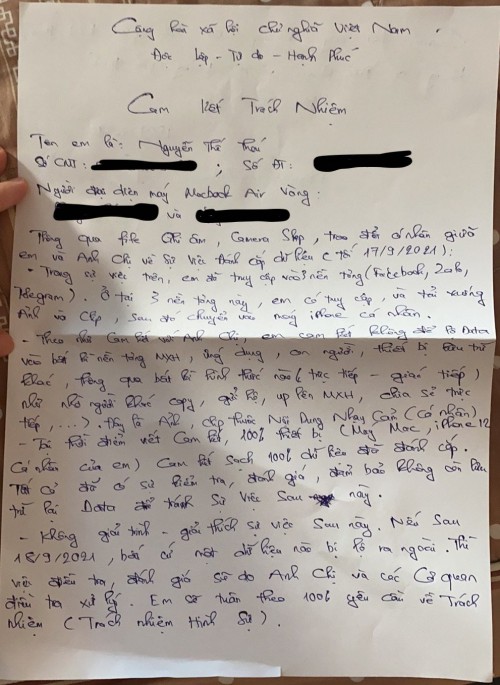 Cộng hoà xã hội chủ nghĩa Việt Nam.
Độc Lập - Tự do - Hạnh Phúc
Cam kết Trách Nhiệm
Tên em là: Nguyễn Thế
Số CNT: ; Số ĐT:
Người đại diện máy Macbook Air Vàng:
và
Thông qua file Ghi âm, Camera Shop, trao đổi cá nhân giữa
em và Anh Chị về Sự việc đánh cắp dữ liệu (Tối 17/9/2021):
- Trong sự việc trên, em đã truy cập vào 3 nền tảng (Facebook, Zalo,
Telegram). Ở tại 3 nền tảng này, em có truy cập, và tải xuống
Ảnh và Clip, Sau đó chuyển vào máy iphone cá nhân.
- Theo như Cam kết với Anh Chị, em cam kết không để lộ Data
vào bất kì nền tảng MXH, ứng dụng, con người, thiết bị lưu trữ
khác, thông qua bất kì hình thức nào (trực tiếp - gián tiếp)
như nhờ người khác copy, gửi hộ, up lên MXH, chia sẻ trực
tiếp, ...). Đây là Ảnh, clip thuộc Nội Dung Nhạy Cảm (Cá nhân)
- Từ thời điểm viết Cam kết, 100% thiết bị (Máy Mac, iPhone 12
Cá nhân của em) Cam kết Sạch 100% dữ liệu đã đánh cắp.
Tất cả đã có sự kiểm tra, đánh giá, đảm bảo không còn lưu
trữ lại Data để tránh Sự việc Sau này.
- Không giải trình - giải thích sự việc Sau này. Nếu Sau
18/9/2021, bất cứ một dữ liệu nào bị lộ ra ngoài. Thì
việc điều tra, đánh giá sẽ do Anh Chị và các Cơ quan
điều tra xử lý. Em sẽ tuân theo 100% yêu cầu về Trách
nhiệm (Trách nhiệm Hình Sự).